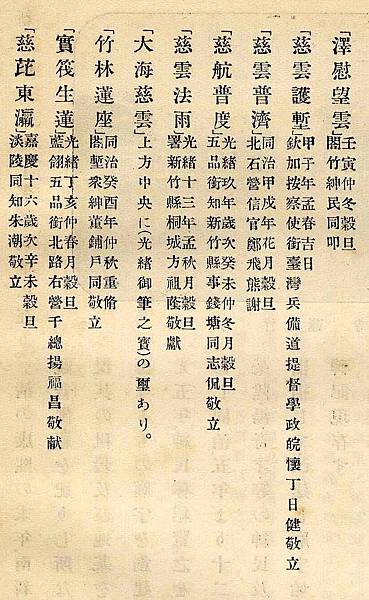 「澤慰望雲」壬寅仲冬穀旦
閤竹紳民同叩
「慈雲護塹」甲子年孟春吉日
欽加按察使銜臺灣兵備道提督學政皖懷丁日健敬立
「慈雲普濟」同治甲戌年花月穀旦
北石營信官鄭飛熊謝
「慈航普度」光緒玖年歲次癸未仲冬月穀旦
五品銜知新竹縣事錢塘同志侃敬立
「慈雲法雨」光緒十三年孟秋月穀旦
署新竹縣桐城方祖蔭敬獻
「大海慈雲」上方中央に(光緒御筆之寶)の璽あり。
「竹林蓮座」同治癸酉年仲秋重脩
塹衆紳董鋪戶同敬立
「實筏生蓮」光緒丁亥仲春月穀旦
藍翎五品銜北路右營千總揚福昌敬献
「慈芘東瀛」嘉慶十六歲次辛未穀旦
淡陵同知朱潮敬立